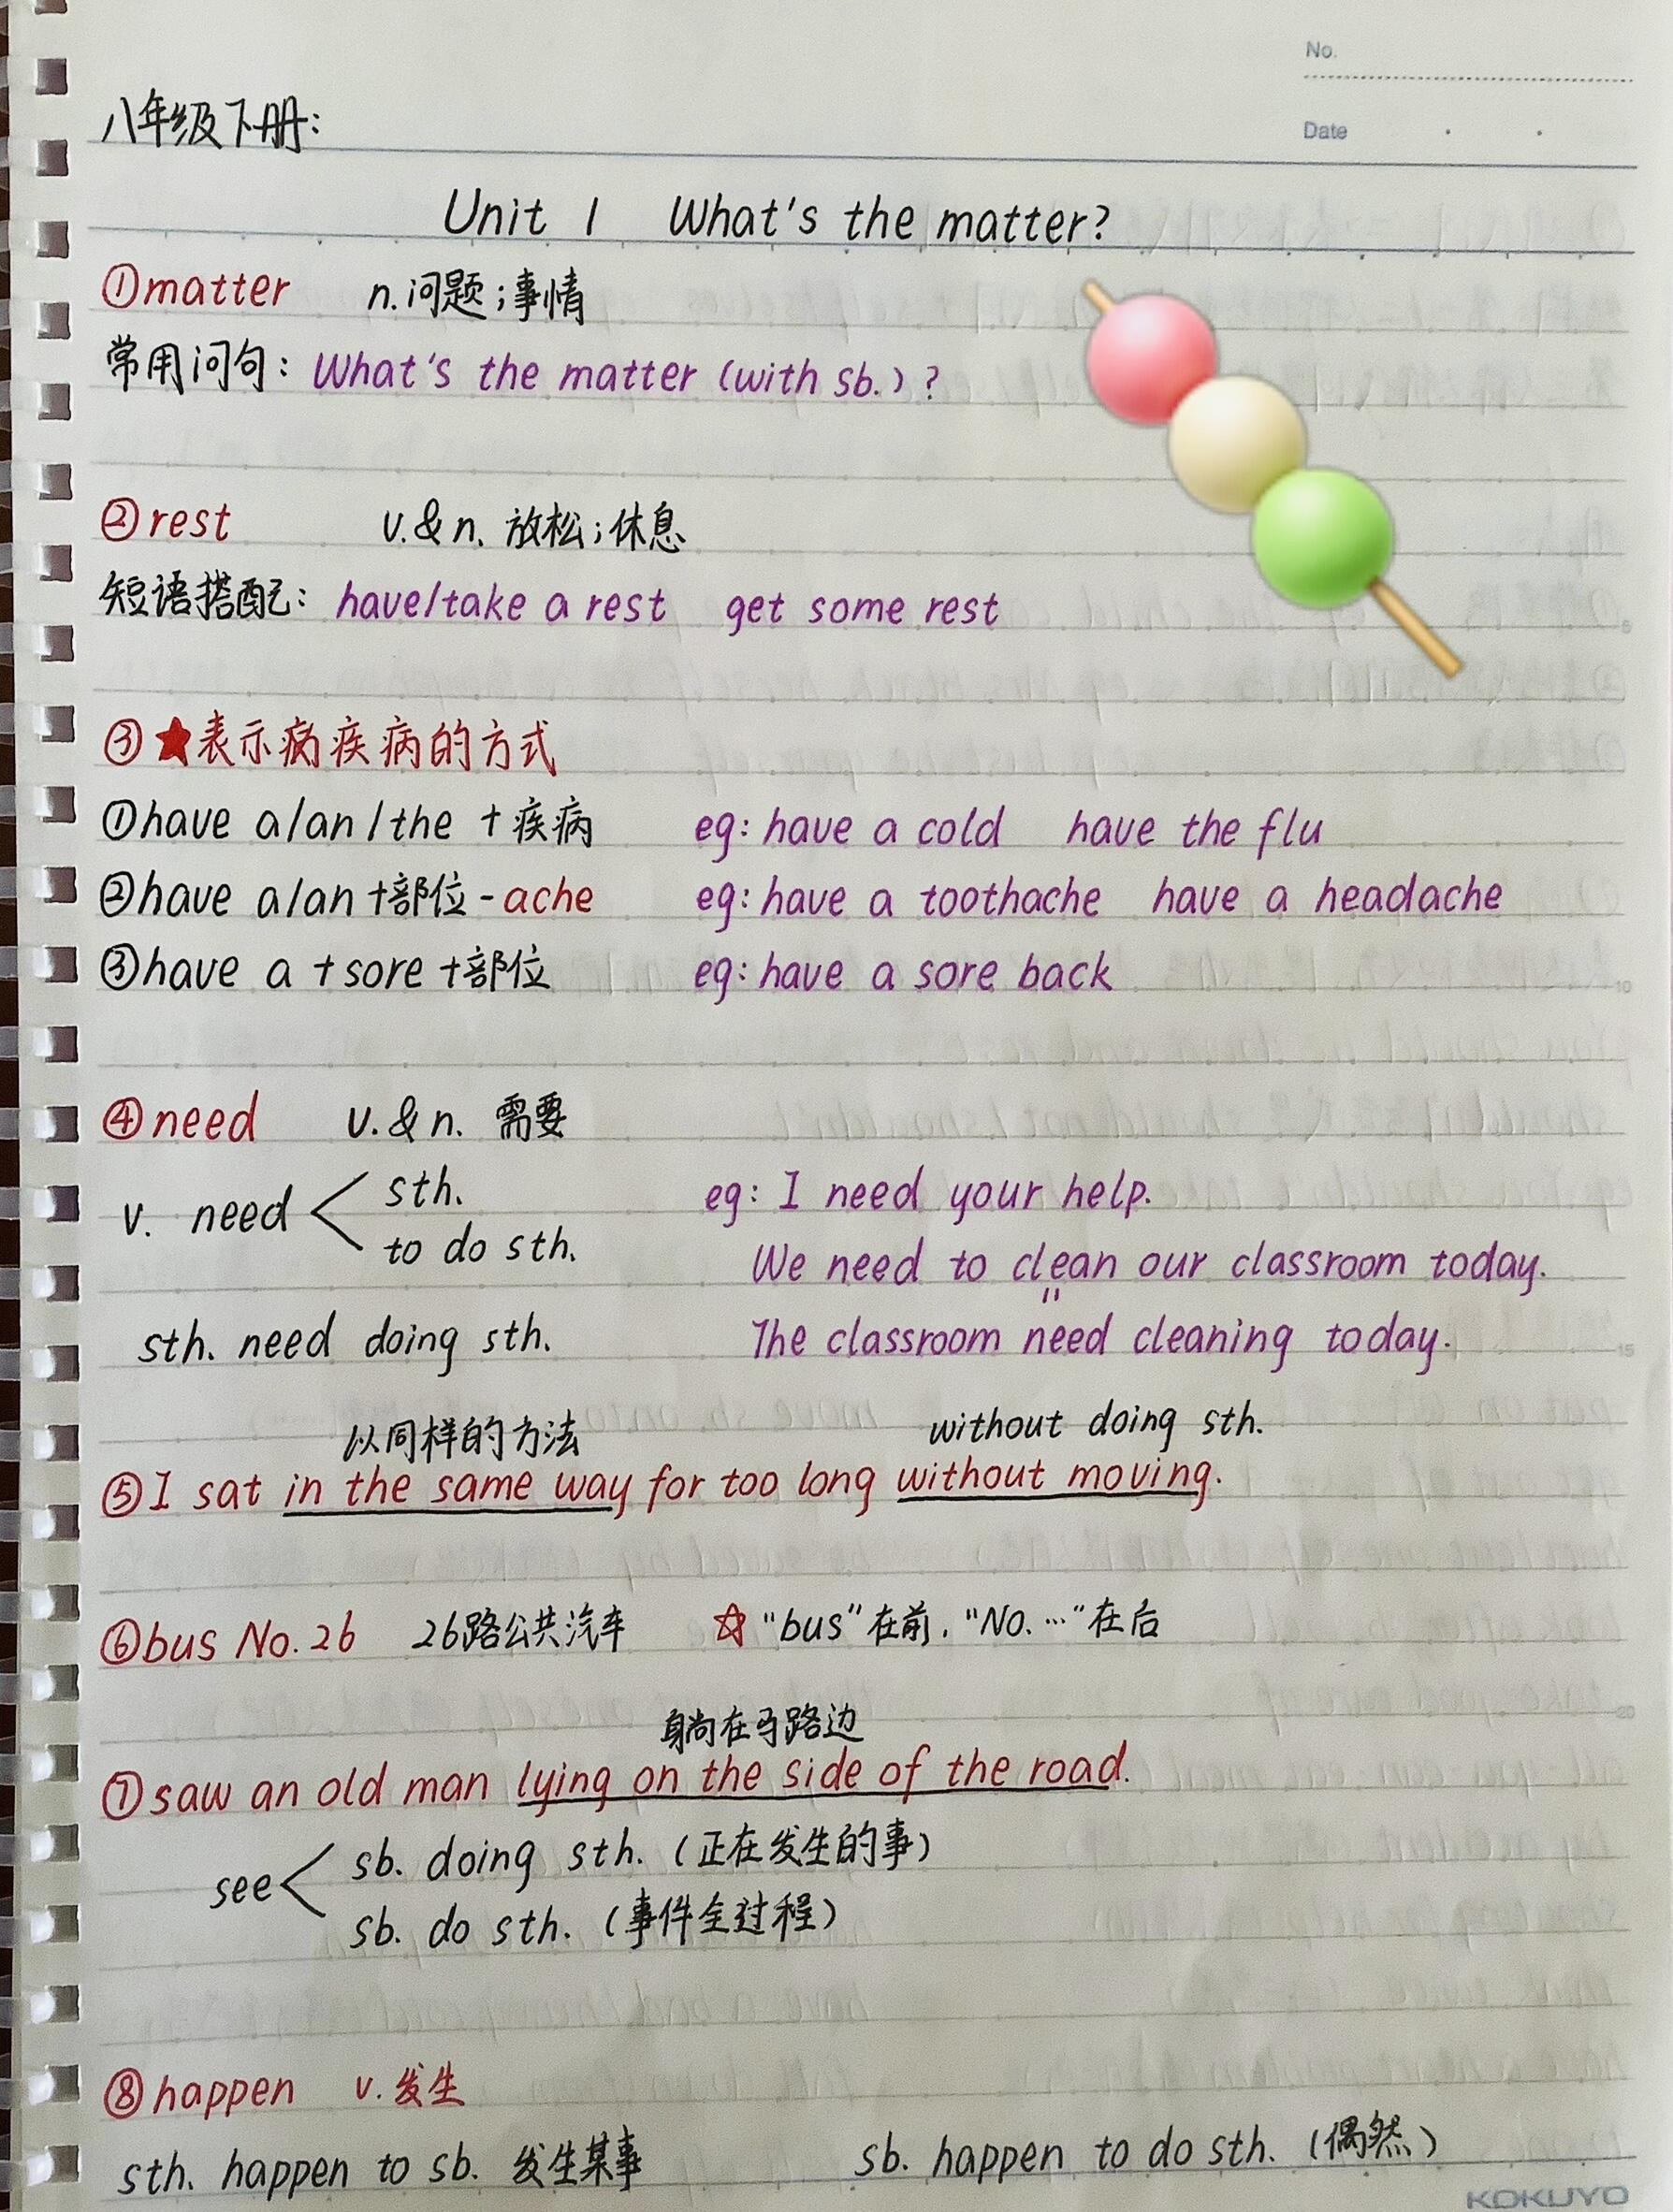 No.
Date
八年级下册:
Unit 1 What's the matter?
①matter n.问题;事情
常用问句: What's the matter (with sb.) ?
②rest v.&n. 放松;休息
短语搭配: have/take a rest get some rest
③★表示病疾病的方式
①have a/an/the +疾病 eg: have a cold have the flu
②have a/an+部位-ache eg: have a toothache have a headache
③have a +sore +部位 eg: have a sore back
④need v.&n. 需要
v. need < sth. eg: I need your help.
to do sth. We need to clean our classroom today.
"
sth. need doing sth. The classroom need cleaning today.
以同样的方法 without doing sth.
⑤I sat in the same way for too long without moving.
⑥bus No.26 26路公共汽车 ☆"bus"在前,"No. …"在后
躺在马路边
⑦saw an old man lying on the side of the road.
see < sb. doing sth. (正在发生的事)
sb. do sth. (事件全过程)
⑧happen v.发生
sth. happen to sb. 发生某事 sb. happen to do sth. (偶然)
KOKUYO